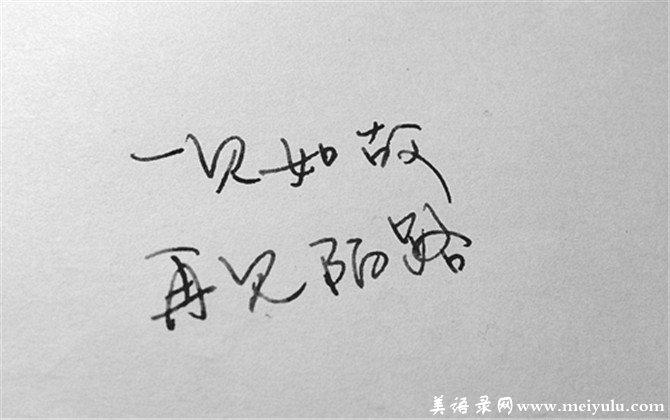 一见如故
再见陌路
美语录网www.meiyulu.com